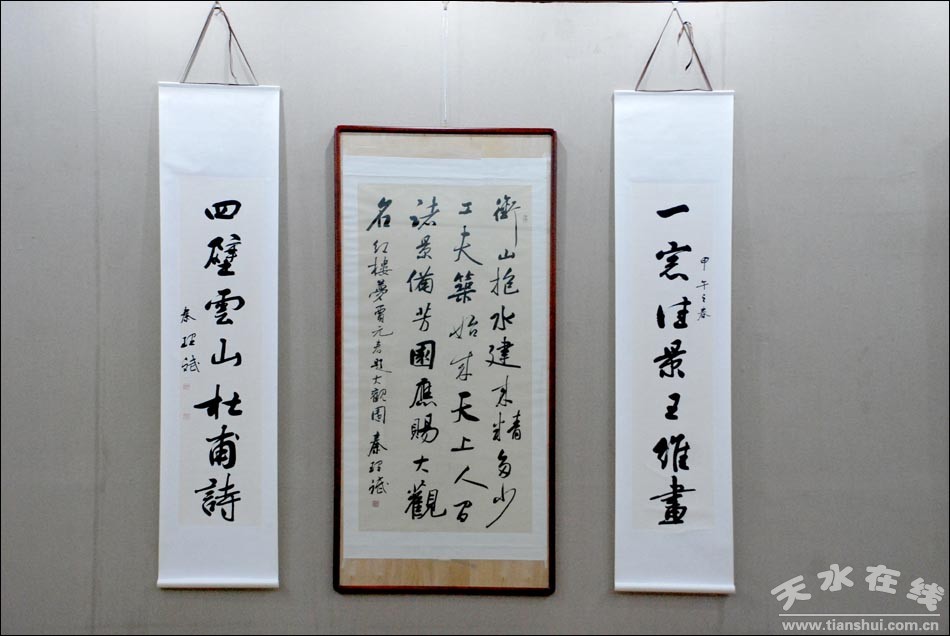 一窓佳景王維畫
甲午之春
銜山抱水建来精多少
工夫築始成天上人间
諸景備芳園應賜大觀
名紅樓夢賈元春題大觀園秦理斌
四壁雲山杜甫詩
秦理斌
天水在线
www.tianshui.com.cn